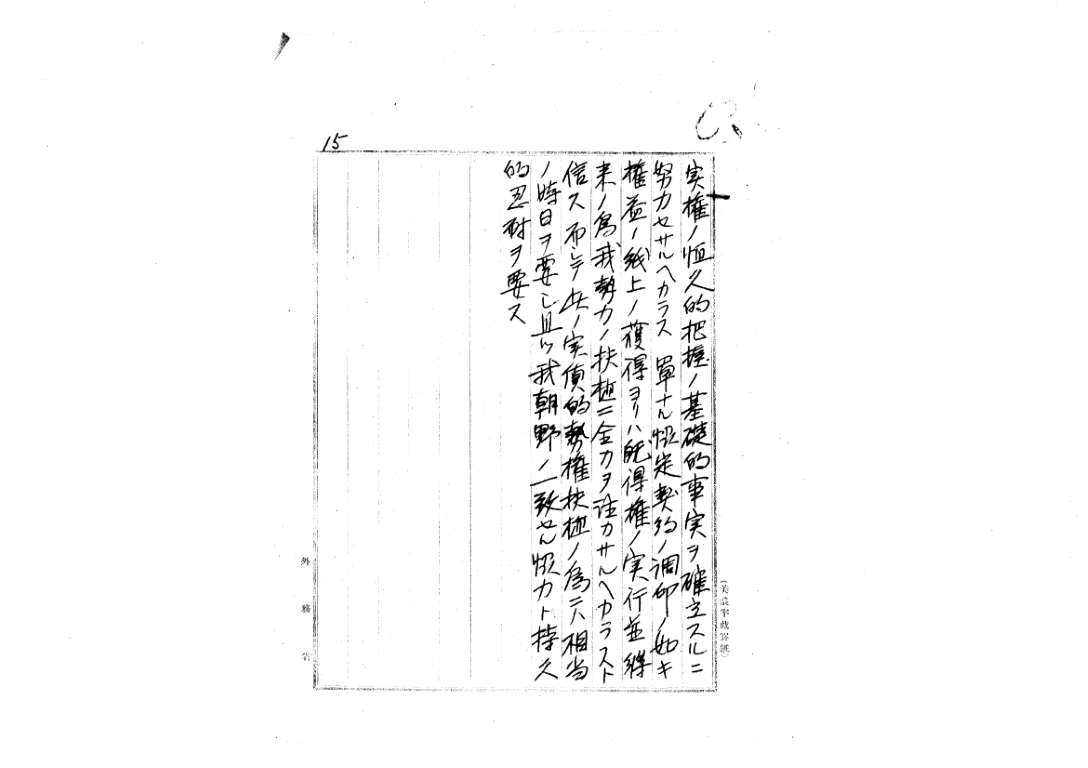 15
実権ノ恒久的把握ノ基礎的事実ヲ確立スルニ
努力セサルヘカラス 単ナル協定契約ノ調印ノ如キ
権益ノ紙上ノ獲得ヨリハ既得権ノ実行並将
来ノ為我勢力ノ扶植ニ全力ヲ注カサルヘカラスト
信ス 而シテ此ノ実債的勢権扶植ノ為ニハ相当
ノ時日ヲ要シ且ツ我朝野ノ一致セル協力ト持久
的忍耐ヲ要ス
外務省
(美濃半截罫紙)